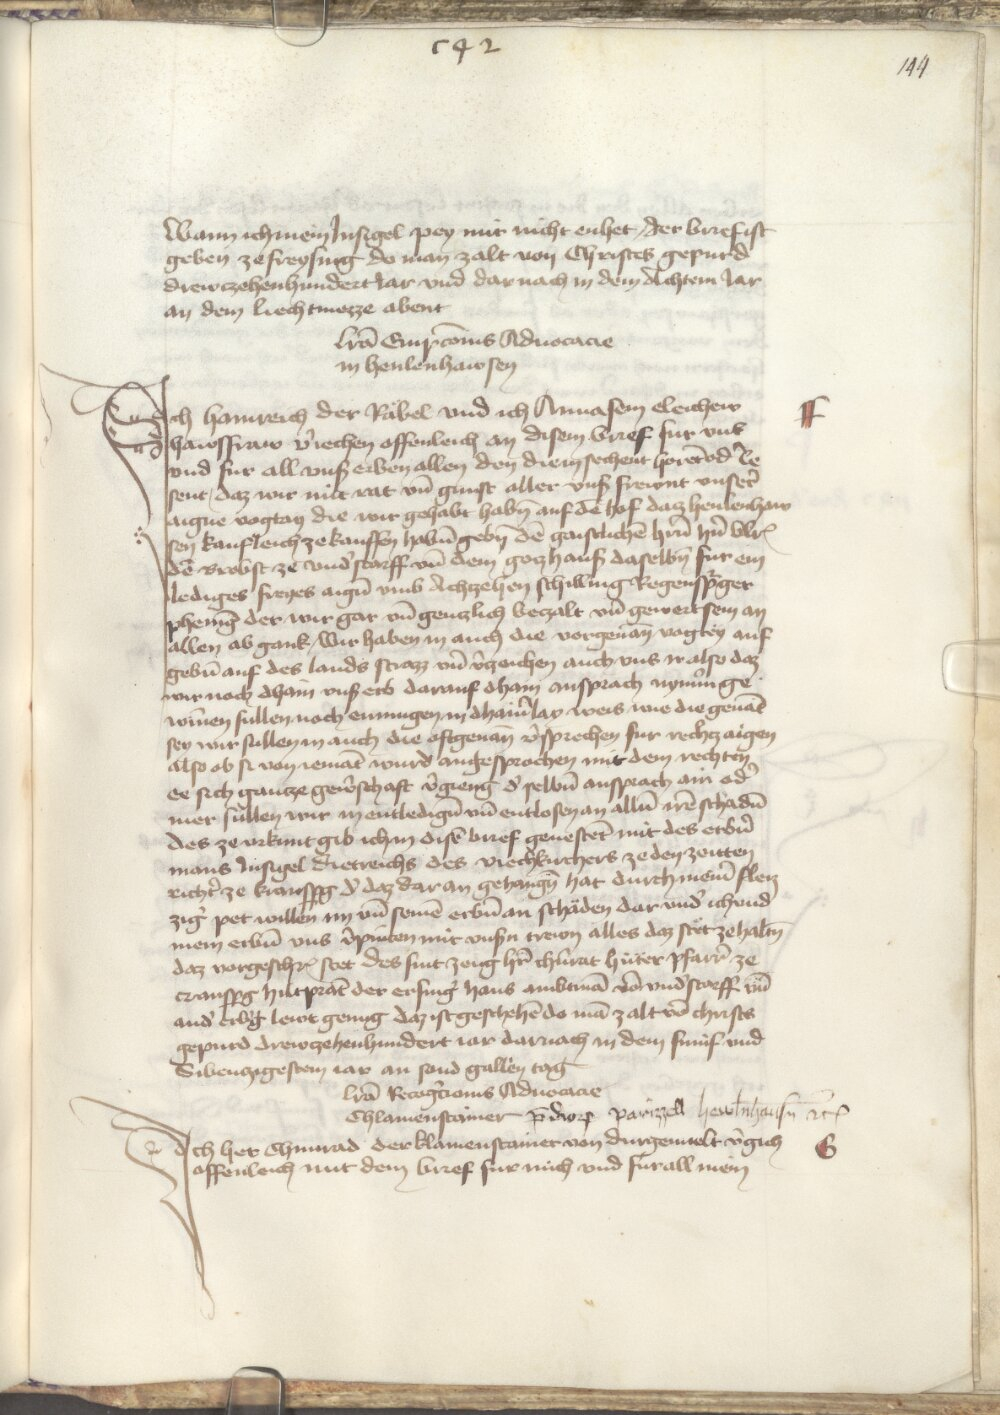 c42
144
Wann ich mein Insigel pey mir nicht enhet / der brief ist
geben ze freysing do man zalt von Christes gepurd
drewczehenhundert Iar vnd dar nach in dem Achtem Iar
an dem liechtmezze abent
lr̄a Empc̄onis Aduocacie
in henlenhawsen
Ich hainreich der Räbel vnd ich Anna sein eleichew
hawsfraw v̾iechen offenleich an disem brief fur vns
vnd fur all vnß erben allen den die in sechent horēt od̾ le
sent / daz wir mit rat vn̄ gunst aller vnß frewnt vnser̾
aigne vogtay die wir gehabt habn̄ auf dē hof datz henlenhaw
sen kaufleich ze kauffen habn̄ gebn̄ dē gaistlichē hr̄n hn̄ vlr̄
dē brobst ze vnd̾storff vn̄ dem gotzhauß daselbn̄ fur ein
lediges freyes aign̄ vmb Achtzehen schilling Regensp̾ger
phenīg der wir gar vn̄ gentzlich betzalt vn̄ gewert sein an
allen ab gank / Wir haben in auch die vorgenan̄ vogtey auf
gebn̄ auf des lands strazz vn̄ v̾zeichen auch vns ir also daz
wir noch dhain vnß erb darauf dhain ansprach nym̄ ge
win̄en sullen noch enmugen in dhain̾lay weis wie die genāt
sey wir sullen in auch die oftgenan̄ v̾sprechen fur rechtz aigen
also ob si von iemāt wurd angesprochen mit dem rechten
ee sich gantze gew̾schaft v̾gieng d̾ selbn̄ ansprach ain od̾
mer sullen wir in entledign̄ vn̄ entlosen an alln̄ irē schadn̄
des ze vrkunt gib ich in disē brief geuestet mit des erbn̄
mans Insigel Dietreichs des viechkirchers ze den zeitten
richt̾ ze kransp̄g d̾ daz dar an gehangn̄ hat durch meinē fleiz
zig̾ pet willen im vn̄ seinē erbn̄ an schäden dar vnd̾ ich vnd
mein erbn̄ vns v̾pinten mit vnßn trewn alles daz stet ze haltn̄
daz vorgeschr̄ stet des sint zeug hr̄ chūrat huter pfarr̾ ze
cransp̄g hiltprāt der ersing̾ hans ambtmā vō vnd̾storff vn̄
and̾ erb̾g lewt genug daz ist geschehē do mā zalt vō christs
gepurd drewtzehenhundert iar darnach in dem funf vnd
Sibentzigestem iar an sand gallen tag
lr̄a Recogc̄ionis Aduocacie
Chlamenstainer p̄dior̄ parizzell hewlnhausn̄ rc̄
Ich her Chunrad der klamenstainer von durgenuelt v̾gich
offenleich mit dem brief fur mich vnd fur all mein
ff
G